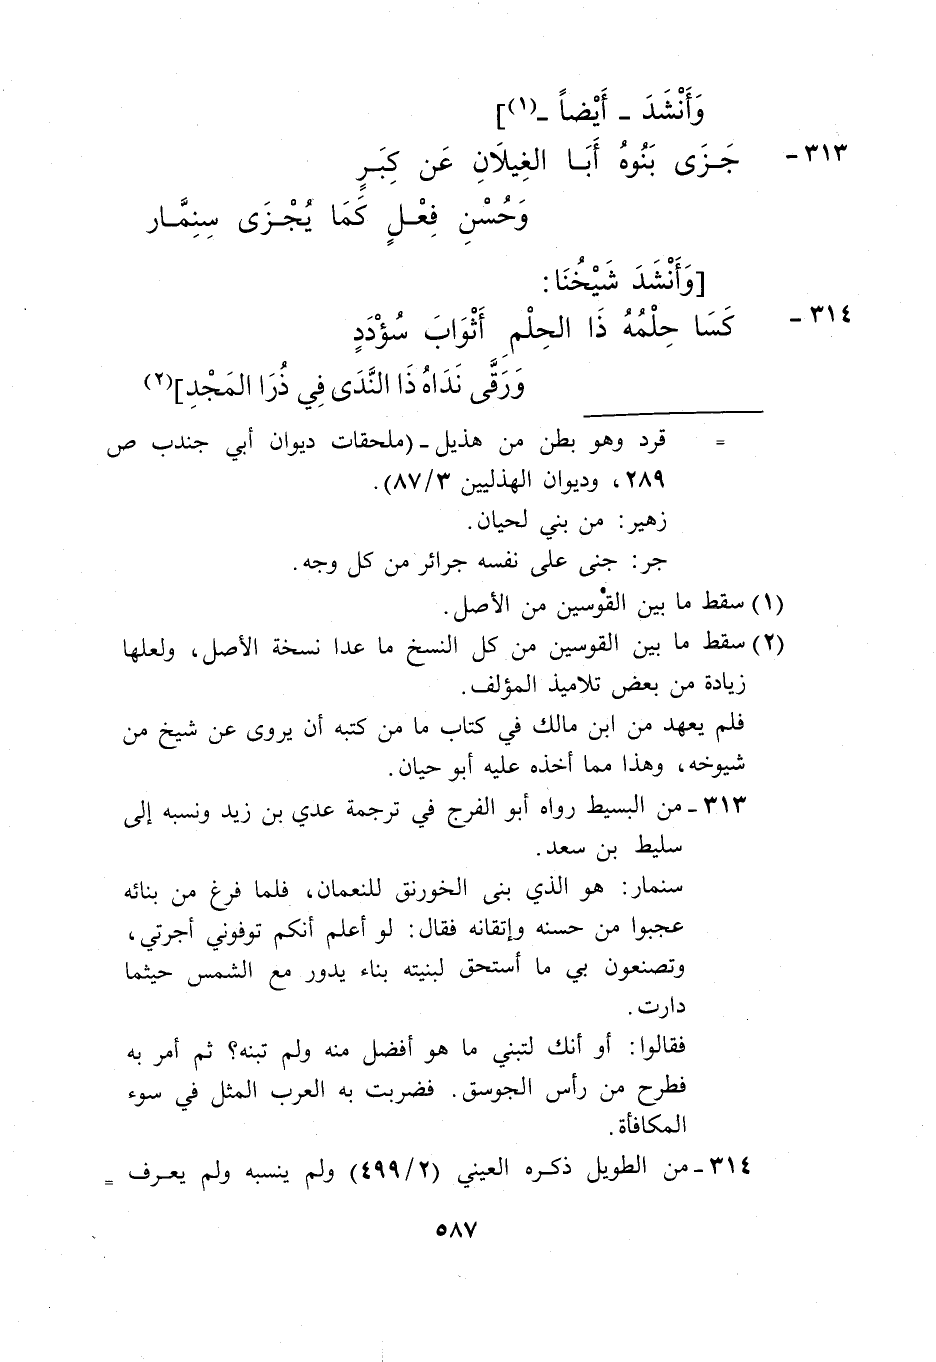 وَأَنْشَدَ - أَيْضاً -(١)]
٣١٣- جَـزَى بَنُوهُ أَبَـا الغِيلَانِ عَن كِبَـرٍ
وَحُسْنِ فِعْـلٍ كَمَا يُجْـزَى سِنِمَّـار
[وَأَنْشَدَ شَيْخُنَا:
٣١٤- كَسَا حِلْمُهُ ذَا الحِلْمِ أَثْوَابَ سُؤْدَدٍ
وَرَقَّى نَدَاهُ ذَا النَّدَى فِي ذُرَا المَجْدِ](٢)
= قرد وهو بطن من هذيل - (ملحقات ديوان أبي جندب ص
٢٨٩، وديوان الهذليين ٨٧/٣).
زهير: من بني لحيان.
جر: جنى على نفسه جرائر من كل وجه.
(١) سقط ما بين القوسين من الأصل.
(٢) سقط ما بين القوسين من كل النسخ ما عدا نسخة الأصل، ولعلها
زيادة من بعض تلاميذ المؤلف.
فلم يعهد من ابن مالك في كتاب ما من كتبه أن يروى عن شيخ من
شيوخه، وهذا مما أخذه عليه أبو حيان.
٣١٣- من البسيط رواه أبو الفرج في ترجمة عدي بن زيد ونسبه إلى
سليط بن سعد.
سنمار: هو الذي بنى الخورنق للنعمان، فلما فرغ من بنائه
عجبوا من حسنه وإتقانه فقال: لو أعلم أنكم توفوني أجرتي،
وتصنعون بي ما أستحق لبنيته بناء يدور مع الشمس حيثما
دارت.
فقالوا: أو أنك لتبني ما هو أفضل منه ولم تبنه؟ ثم أمر به
فطرح من رأس الجوسق. فضربت به العرب المثل في سوء
المكافأة.
٣١٤- من الطويل ذكـره العيني (٤٩٩/٢) ولم ينسبه ولم يعـرف =
٥٨٧